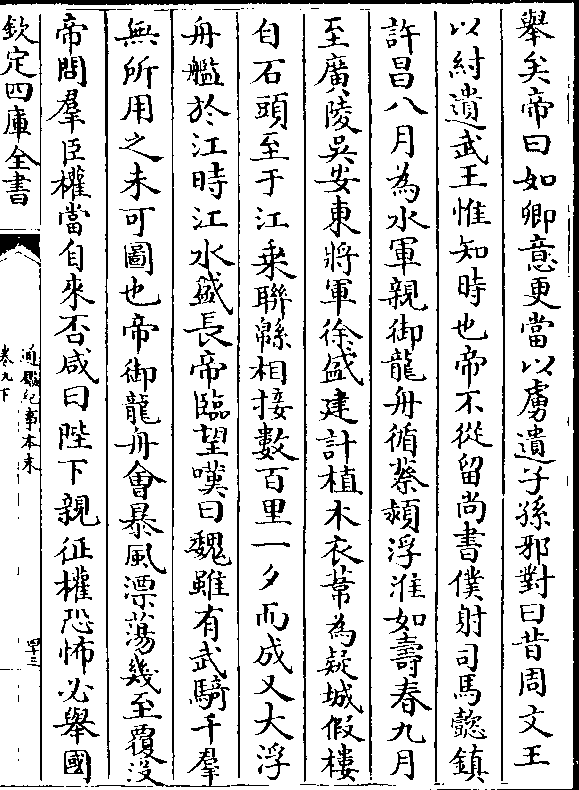 舉矣帝曰如卿意更當以虜遺子孫邪對曰昔周文王
以紂遺武王惟知時也帝不從留尚書僕射司馬懿鎮
許昌八月為水軍親御龍舟循蔡潁浮淮如壽春九月
至廣陵吳安東將軍徐盛建計植木衣葦為疑城假樓
自石頭至于江乘聯緜相接數百里一夕而成又大浮
舟艦於江時江水盛長帝臨望嘆曰魏雖有武騎千羣
無所用之未可圖也帝御龍舟會暴風漂蕩幾至覆沒
帝問羣臣權當自來否咸曰陛下親征權恐怖必舉國
欽定四庫全書
通鑑紀事本末
卷九下
四十三